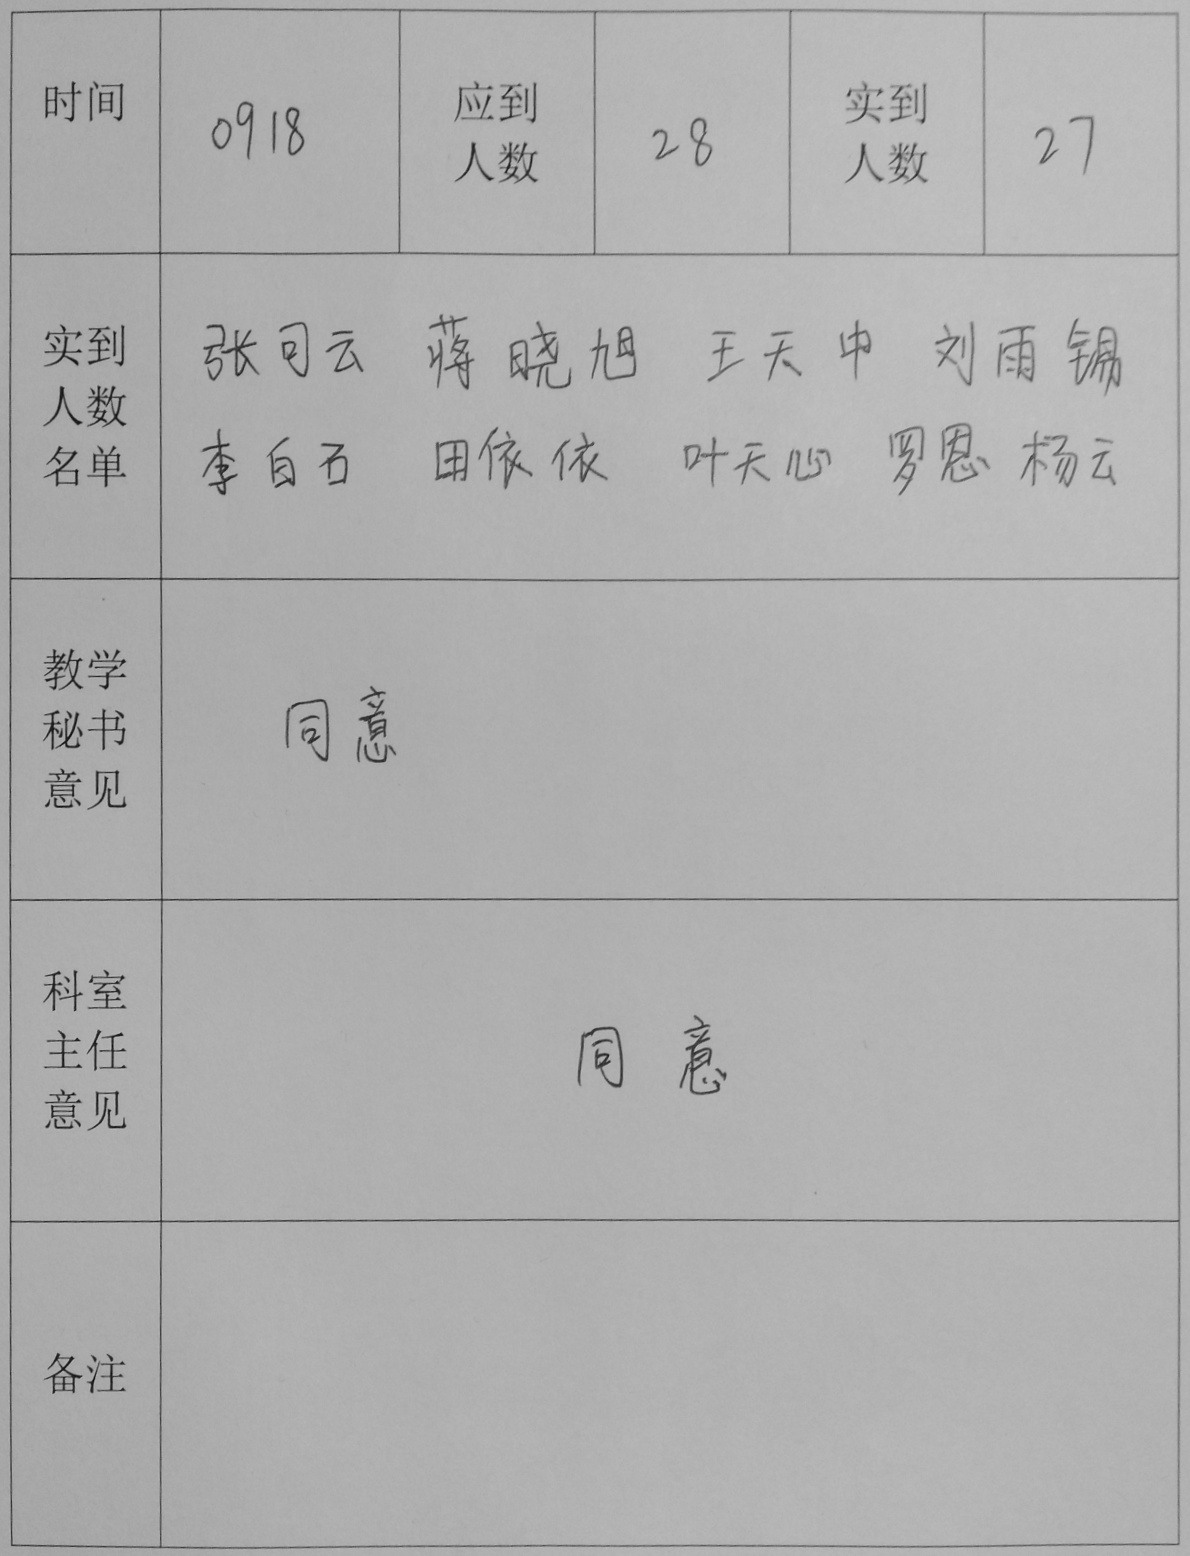 时间 0918 应到人数 28 实到人数 27
实到人数名单
张司云 蒋晓旭 王天申 刘雨锡
李白石 田依依 叶天心 罗恩 杨云
教学秘书意见
同意
科室主任意见
同意
备注